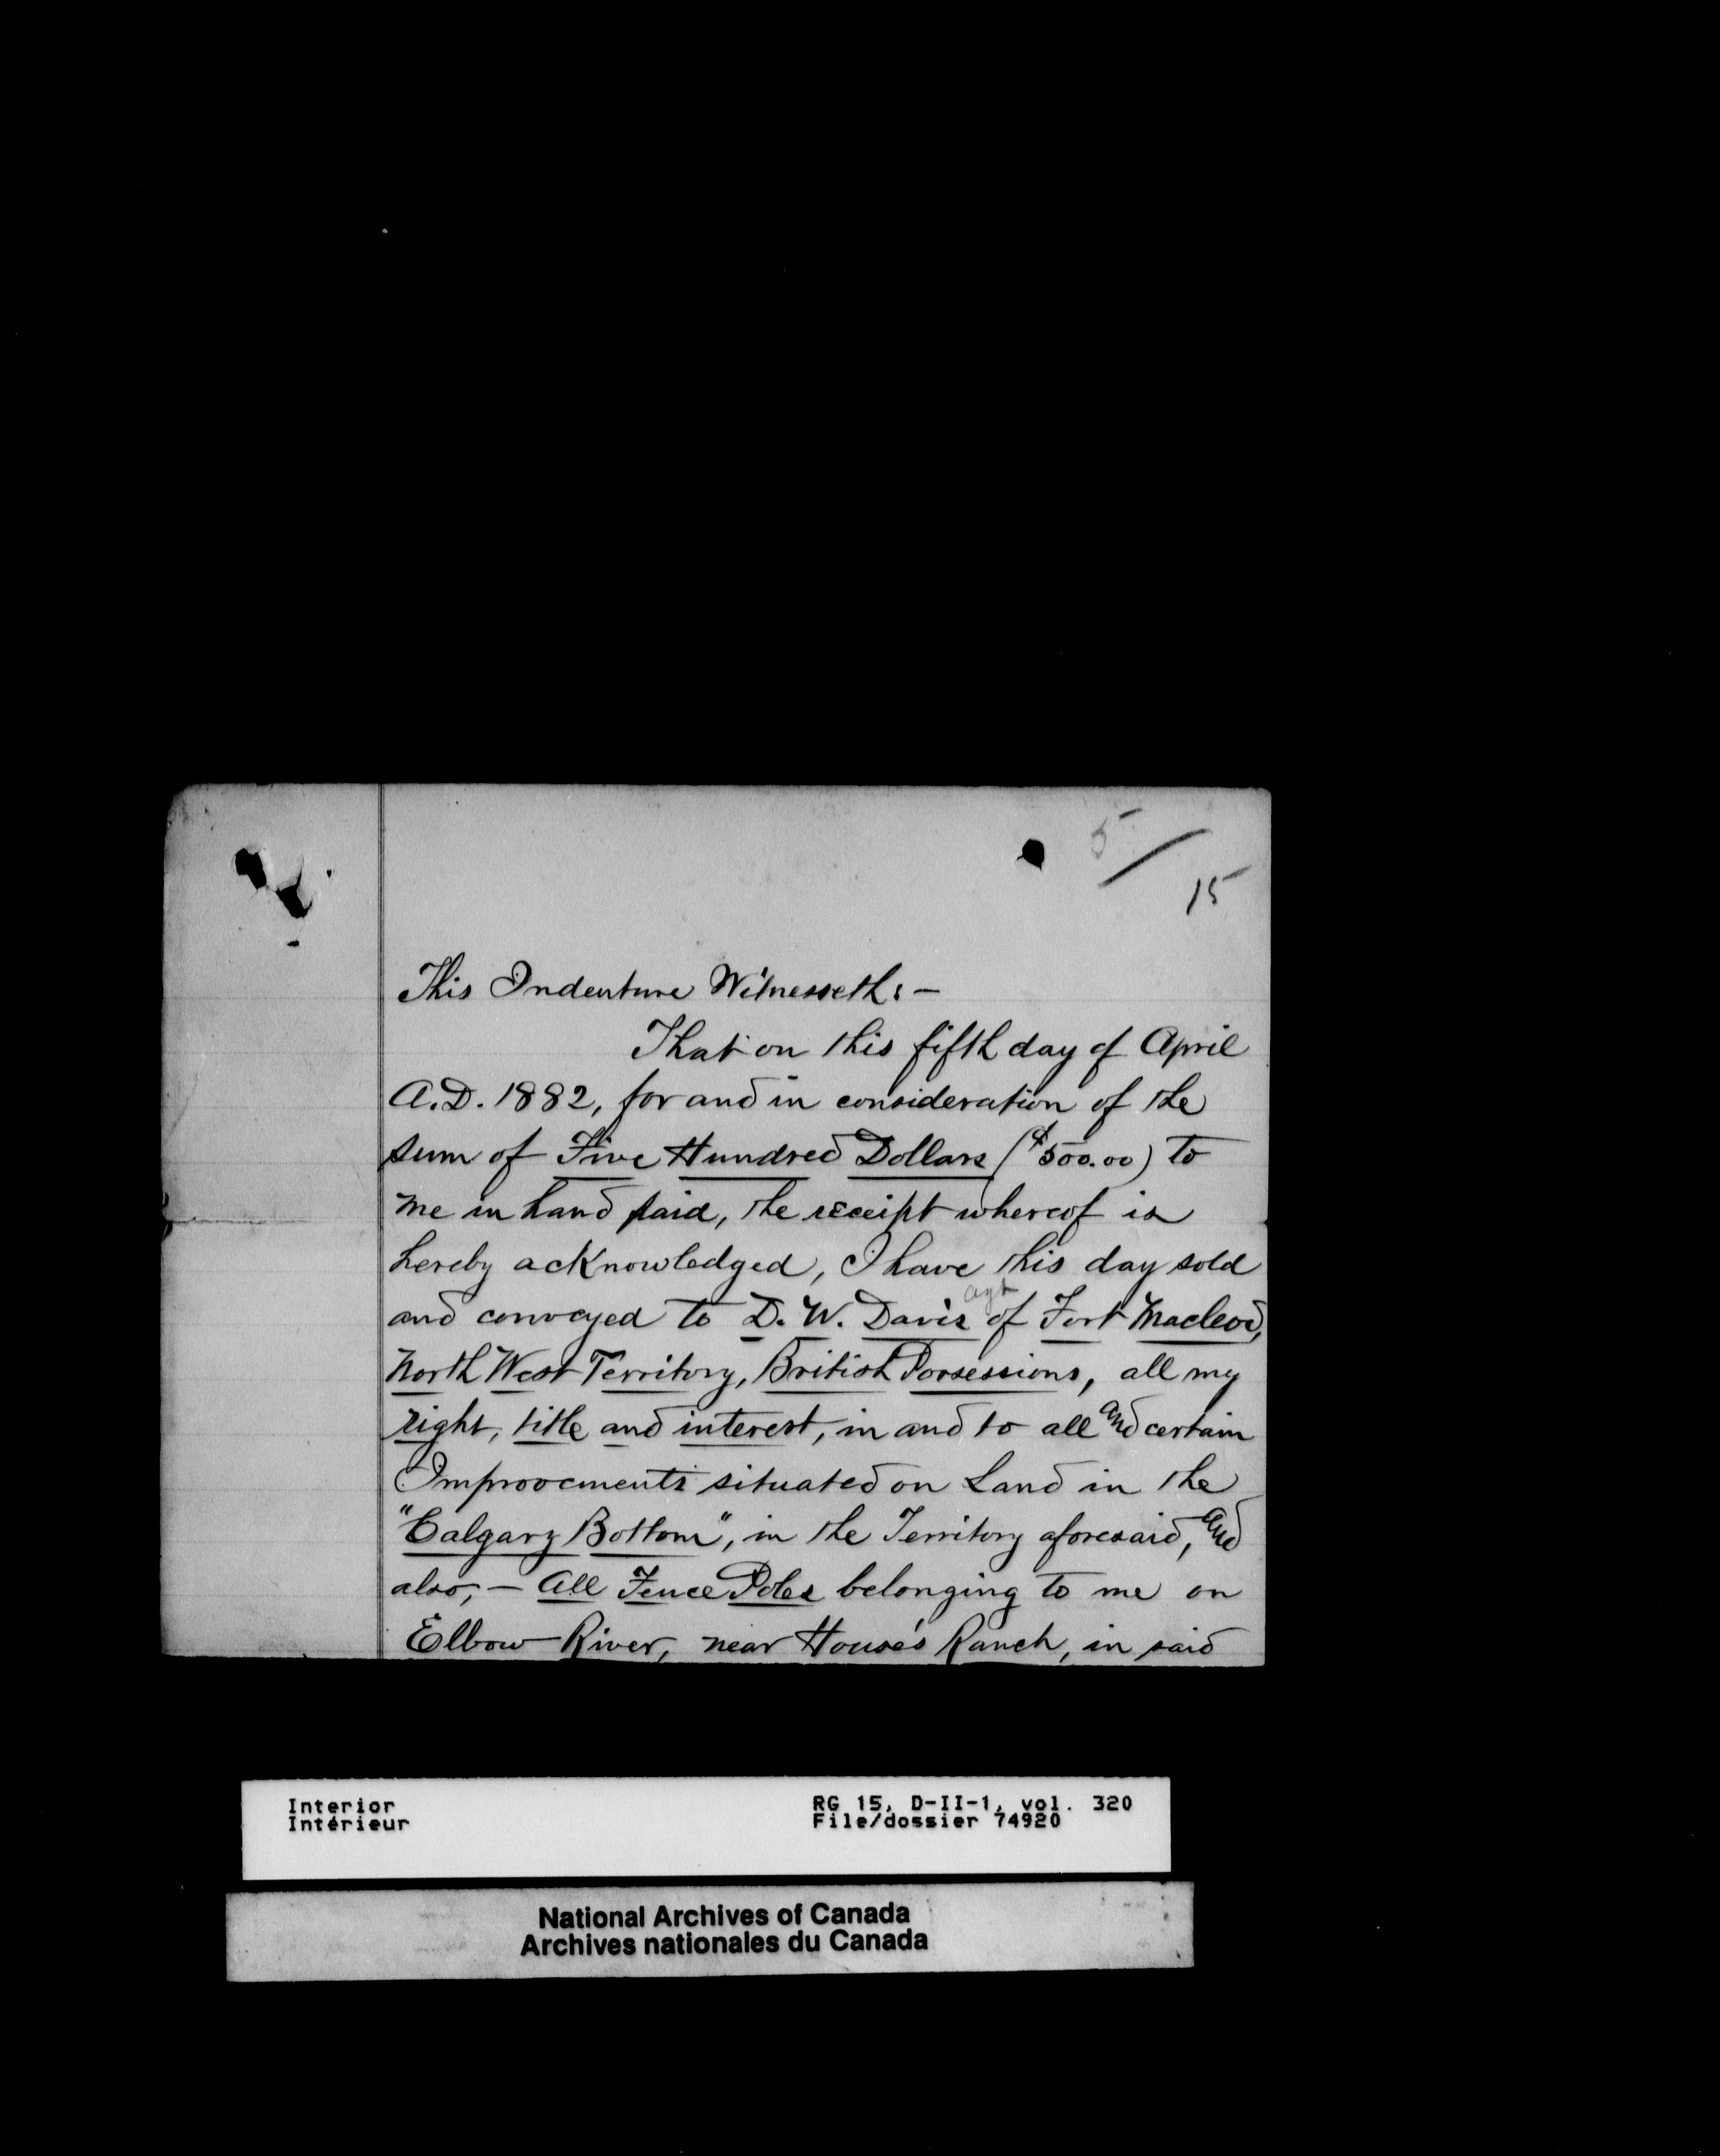 5
15
This Indenture Witnesseth:—
That on this fifth day of April
A.D. 1882, for and in consideration of the
sum of Five Hundred Dollars ($500.00) to
me in hand paid, the receipt whereof is
hereby acknowledged, I have this day sold
and conveyed to D. W. Davis agt of Fort Macleod,
North West Territory, British Possessions, all my
right, title and interest, in and to all and certain
Improvements situated on Land in the
"Calgary Bottom", in the Territory aforesaid, and
also;— All Fence Poles belonging to me on
Elbow River, near House's Ranch, in said
Interior RG 15, D-II-1, vol. 320
Intérieur File/dossier 74920
National Archives of Canada
Archives nationales du Canada